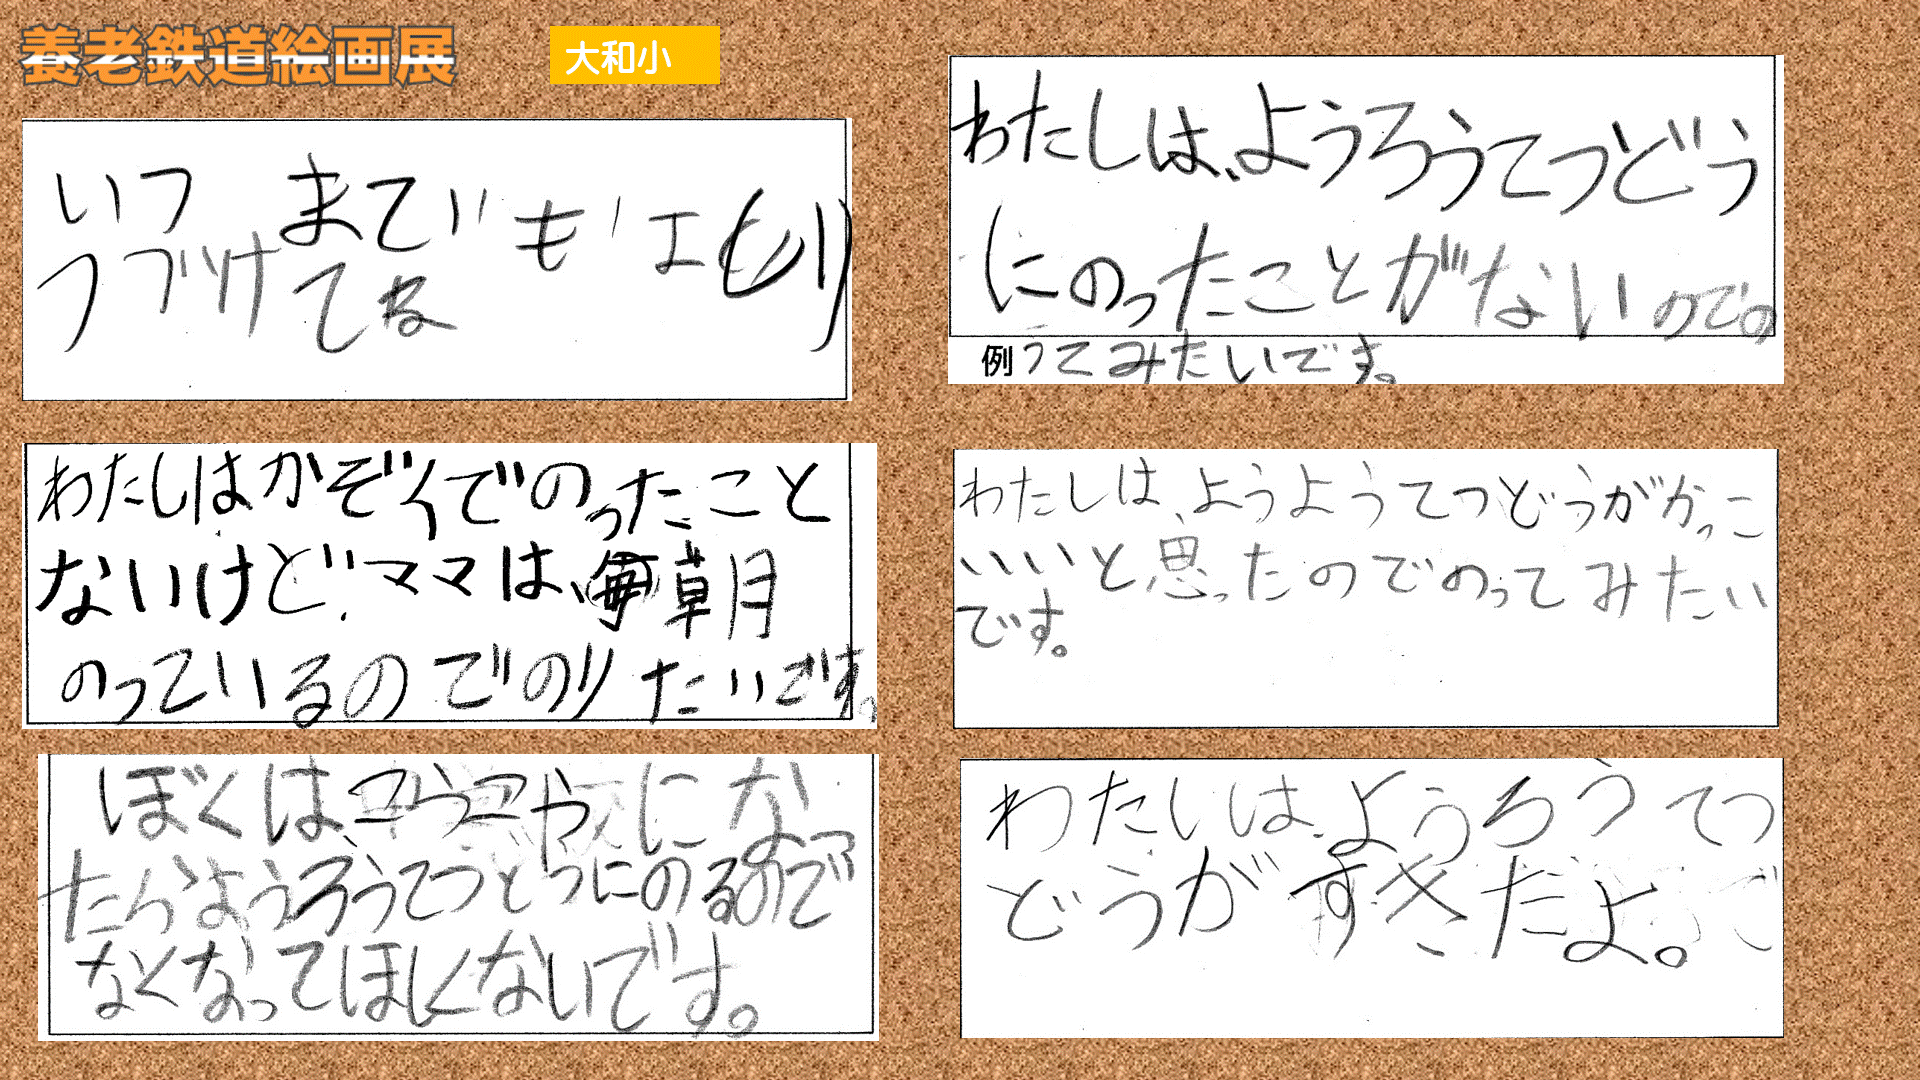 養老鉄道絵画展
大和小
いつ まで も
つづけてね
わたしは、ようろうてつどう
にのったことがないのでの
例
ってみたいです。
わたしはかぞくでのったこと
ないけど、ママは、毎朝
のっているのでのりたいです。
わたしは、ようようてつどうがかっこ
いいと思ったのでのってみたい
です。
ぼくは、コウコやになっ
たらようろうてつとつにのるので
なくなってほしくないです。
わたしは、ようろうてつ
どうがすきだよ。